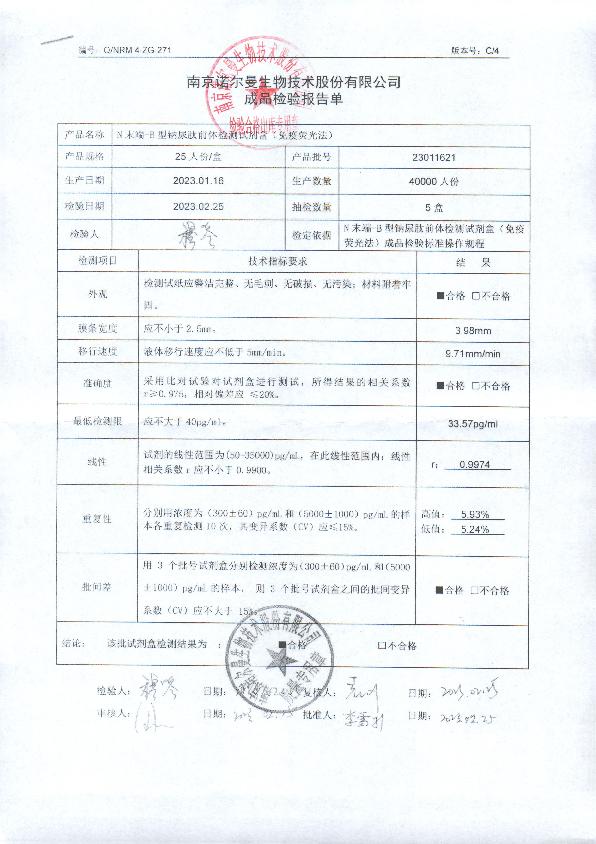 编号: Q/NRM 4-ZG-271 版本号: C/4
南京诺尔曼生物技术股份有限公司
成品检验报告单
产品名称 N末端-B型钠尿肽前体检测试剂盒（免疫荧光法）
产品规格 25人份/盒 产品批号 23011621
生产日期 2023.01.16 生产数量 40000人份
检验日期 2023.02.25 抽检数量 5盒
检验人 检定依据 N末端-B型钠尿肽前体检测试剂盒（免疫
荧光法）成品检验标准操作规程
检测项目 技术指标要求 结 果
外观 检测试纸应整洁完整、无毛刺、无破损、无污染；材料附着牢
固。 ■合格 □不合格
膜条宽度 应不小于2.5mm。 3.98mm
移行速度 液体移行速度应不低于5mm/min。 9.71mm/min
准确度 采用比对试验对试剂盒进行测试，所得结果的相关系数
r≥0.975，相对偏差应≤20%。 ■合格 □不合格
最低检测限 应不大于40pg/mL。 33.57pg/ml
线性 试剂的线性范围为(50-35000)pg/mL，在此线性范围内；线性
相关系数r应不小于0.9900。 r: 0.9974
重复性 分别用浓度为(300±60)pg/mL和(5000±1000)pg/mL的样
本各重复检测10次，其变异系数（CV）应≤15%。 高值: 5.93%
低值: 5.24%
批间差 用3个批号试剂盒分别检测浓度为(300±60)pg/mL和(5000
±1000)pg/mL的样本，则3个批号试剂盒之间的批间变异
系数（CV）应不大于15%。 ■合格 □不合格
结论: 该批试剂盒检测结果为: ■合格 □不合格
检验人: 日期: 复核人: 日期: 2023.02.25
审核人: 日期: 批准人: 日期: 2023.02.25